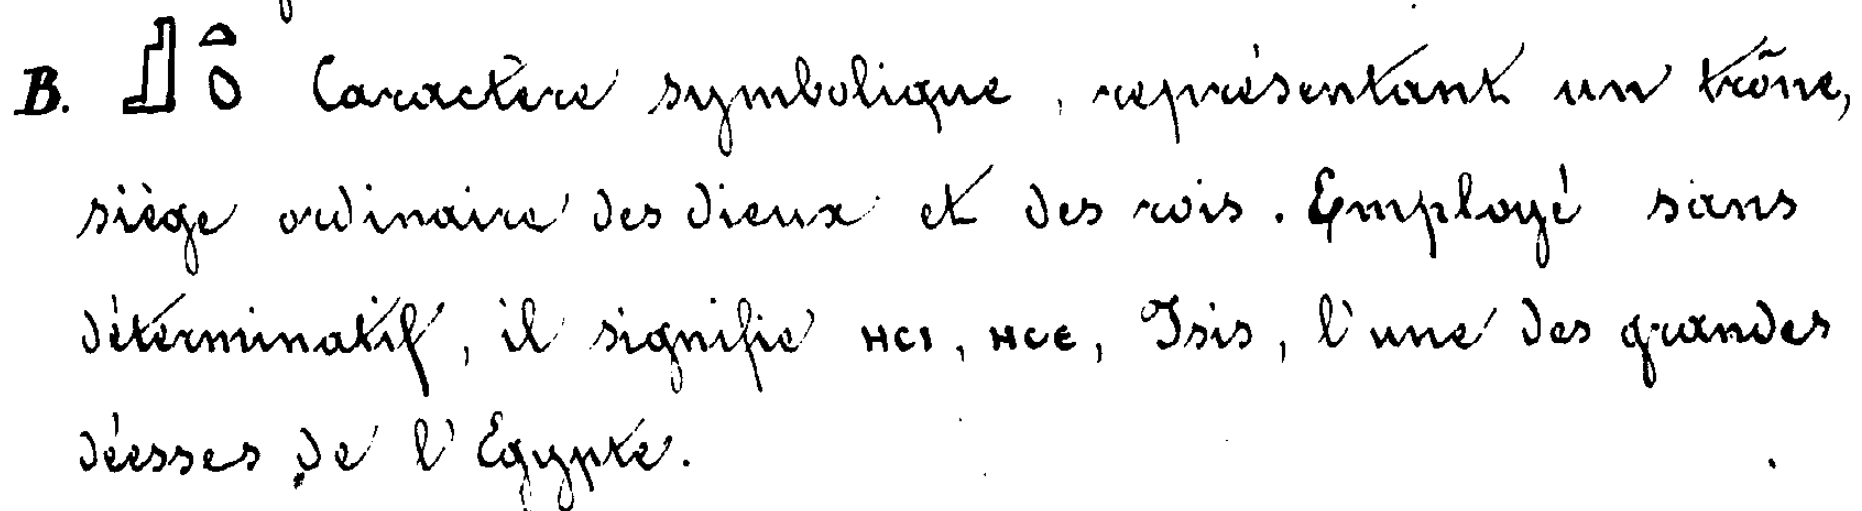 B. 𓊨𓏏𓆇 Caractère symbolique, représentant un trône,
siège ordinaire des dieux et des rois. Employé sans
déterminatif, il signifie ⲏⲥⲓ, ⲏⲥⲉ, Isis, l'une des grandes
déesses de l'Egypte.